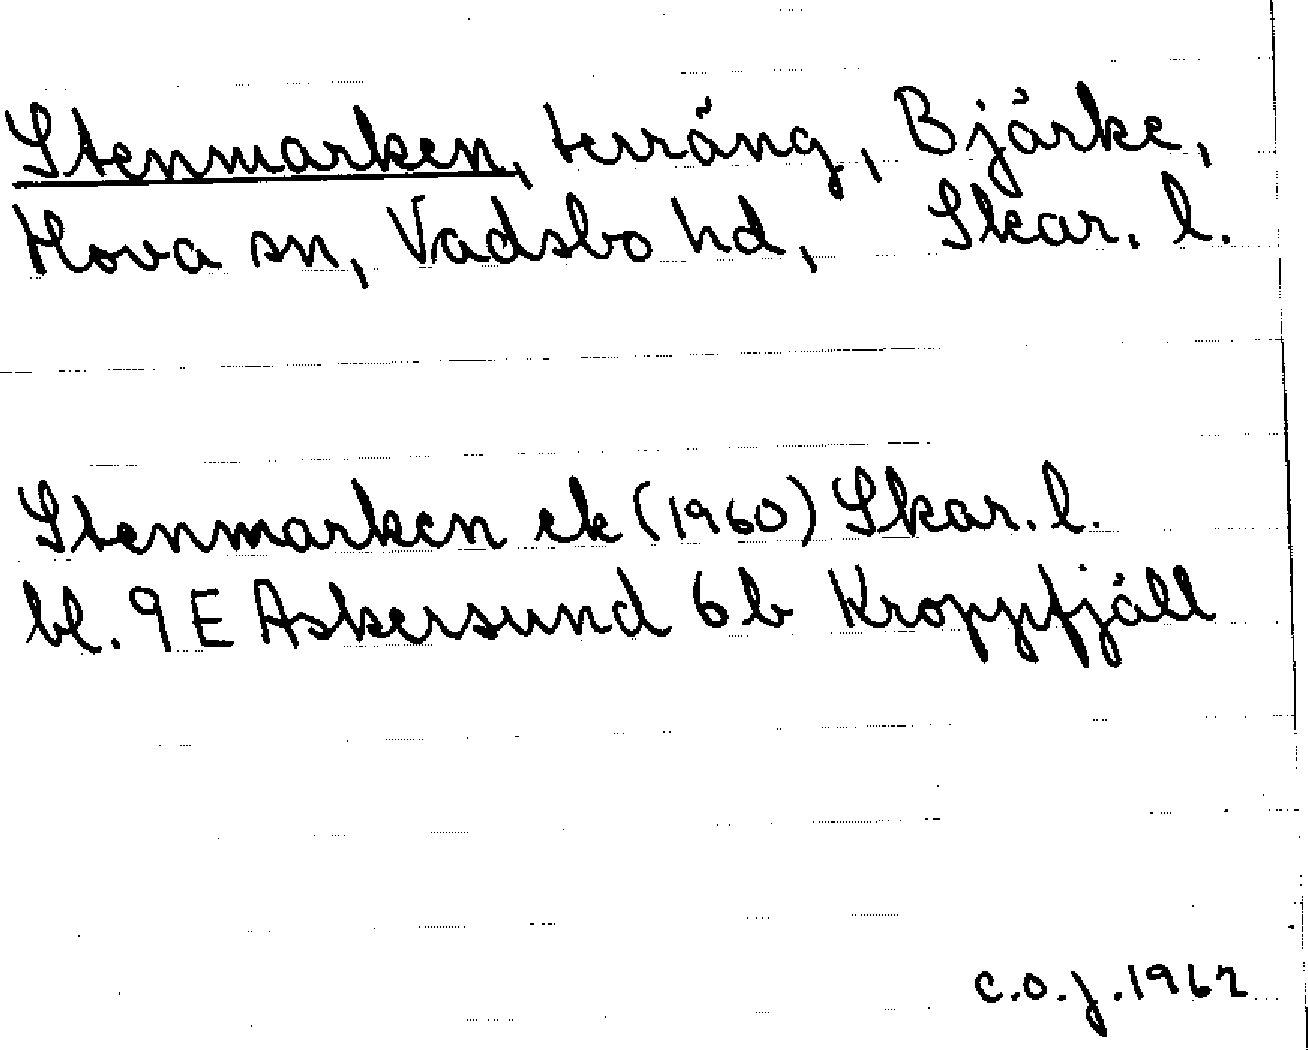 Stenmarken, terräng, Bjärke,
Hova sn, Vadsbo hd, Skar. l.
Stenmarken ek (1960) Skar. l.
bl. 9 E Askersund 6 b Kroppfjäll
C.O.J. 1962